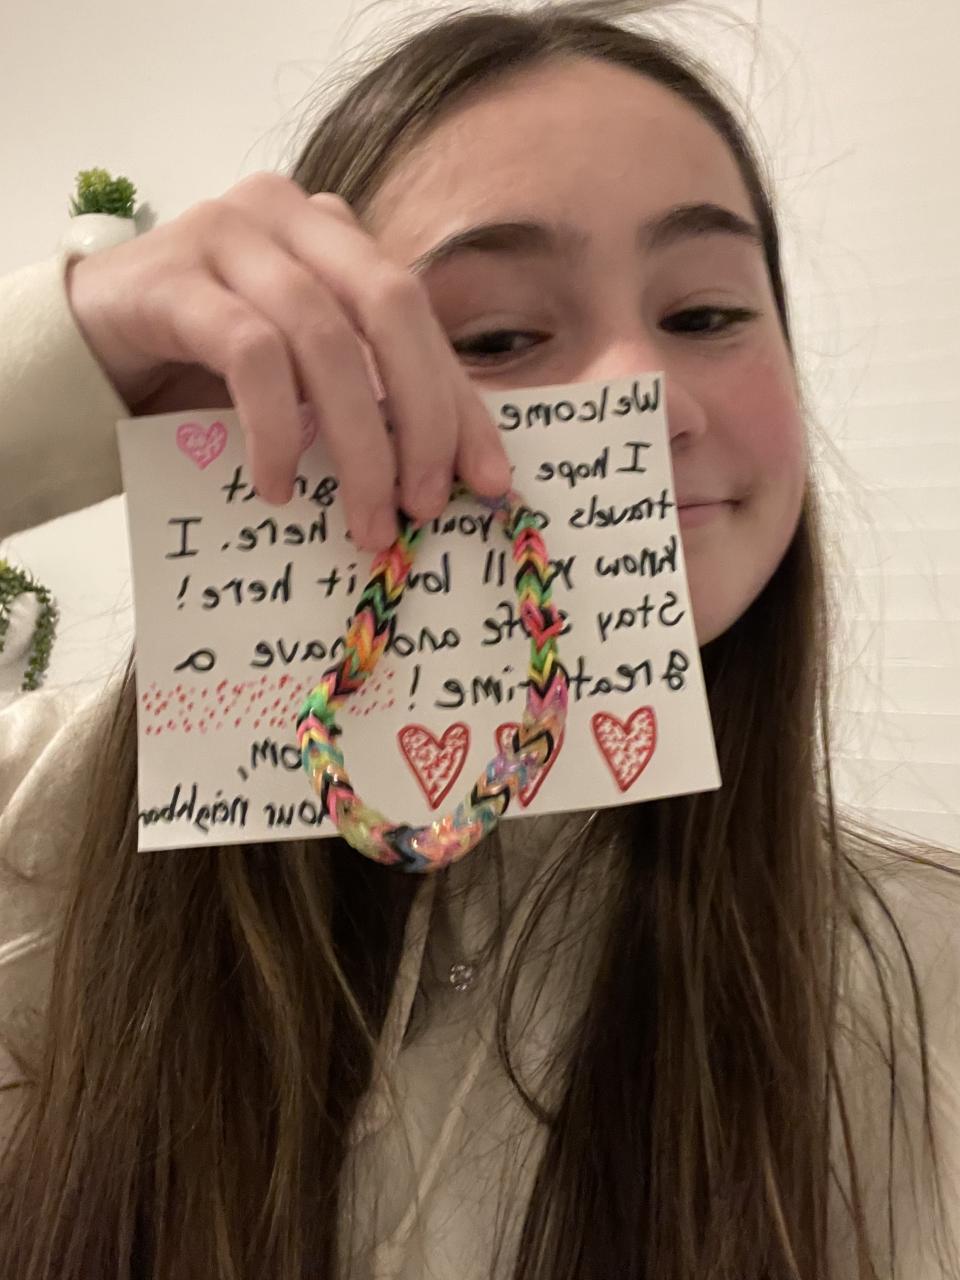 Welcome
I hope great
travels your here. I
know y'll love it here!
Stay safe and have a
great time!
from,
your neighbor